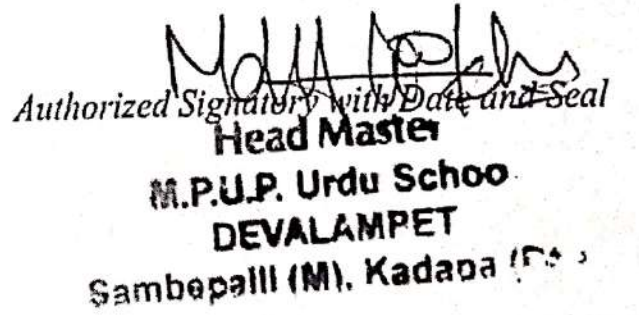 Authorized Signatory with Date and Seal
Head Master
M.P.U.P. Urdu Schoo
DEVALAMPET
Sambepalli (M), Kadapa